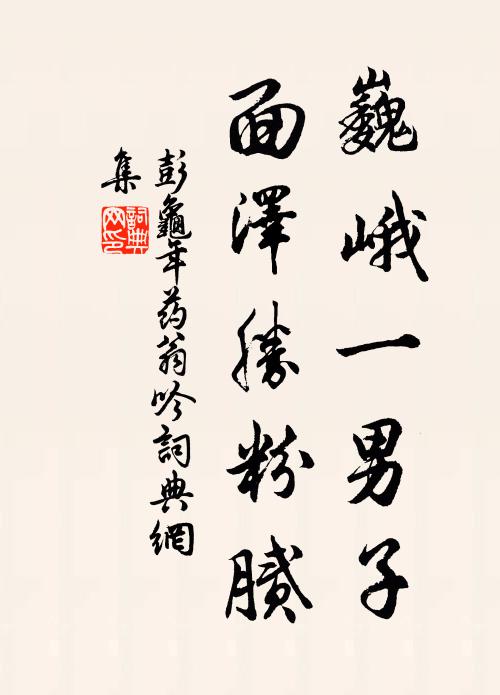 巍峨一男子
面澤勝粉膩
彭龜年药翁吟詞典網
集
詞典
网印